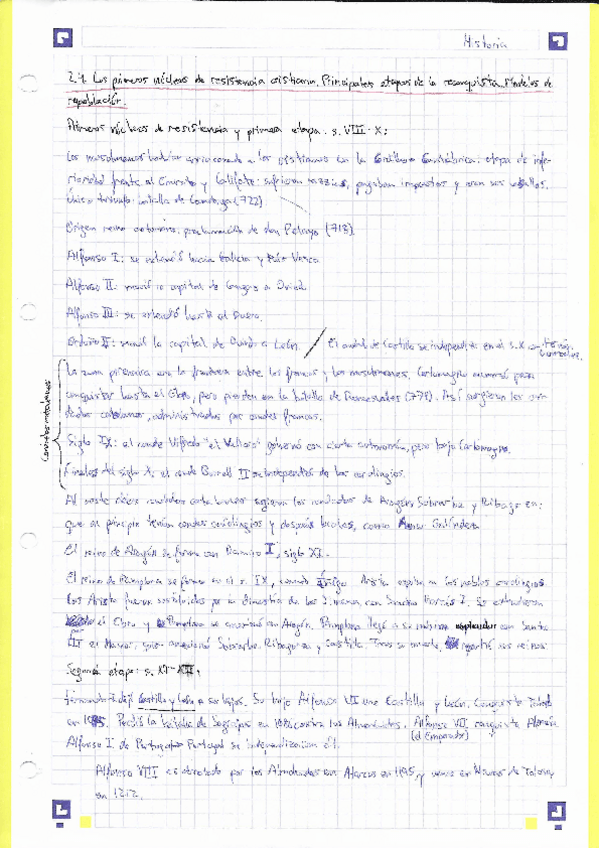 Historia
2.4. Los primeros núcleos de resistencia cristiana. Principales etapas de la reconquista. Modelos de
repoblación.
Primeros núcleos de resistencia y primera etapa: s. VIII-X:
Los musulmanes habían arrinconado a los cristianos en la Cordillera Cantábrica: etapa de infe-
rioridad frente al Emirato y Califato: sufrieron razzias, pagaban impuestos y eran sus vasallos.
Único triunfo: batalla de Covadonga (722)
Origen reino asturiano: proclamación de don Pelayo (718).
Alfonso I: se extendió hacia Galicia y País Vasco
Alfonso II: movió la capital de Cangas a Oviedo.
Alfonso III: se extendió hasta el Duero.
Ordoño II: mandó la capital de Oviedo a León. / El condal de Castilla se independiza en el s. X con Fernán
González.
Condados catalanes
La zona pirenaica era la frontera entre los francos y los musulmanes. Carlomagno avanzó para
conquistar hasta el Ebro, pero pierden en la batalla de Roncesvalles (778). Así surgieron los con-
dados catalanes, administrados por condes francos.
Siglo IX: el conde Vifredo "el Velloso" gobernó con cierta autonomía, pero bajo Carlomagno.
Finales del siglo X: el conde Borrell II se independizó de los carolingios.
Al oeste de los condados catalanes surgieron los condados de Aragón, Sobrarbe y Ribagorza:
que al principio tenían condes carolingios y después locales, como Aznar Galíndez.
El reino de Aragón se forma con Ramiro I, siglo XI.
El reino de Pamplona se forma en el s. IX, cuando Íñigo Arista expulsa a los nobles carolingios.
Los Arista fueron sustituidos por la dinastía de los Jimena con Sancho Garcés I. Se extendieron
por el Ebro y Pamplona se anexionó con Aragón. Pamplona llegó a su máximo esplendor con Sancho
III el Mayor, que anexionó Sobrarbe, Ribagorza y Castilla. Tras su muerte, repartió sus reinos.
Segunda etapa: s. XI-XII:
Fernando I dejó Castilla y León a sus hijos. Su hijo Alfonso VI une Castilla y León. Conquista Toledo
en 1085. Perdió la batalla de Sagrajas en 1086 contra los Almorávides. Alfonso VII conquista Almería
(el Emperador)
Alfonso I de Portugal: Portugal se independiza con él.
Alfonso VIII es derrotado por los Almohades en Alarcos en 1195, y vence en Navas de Tolosa
en 1212.